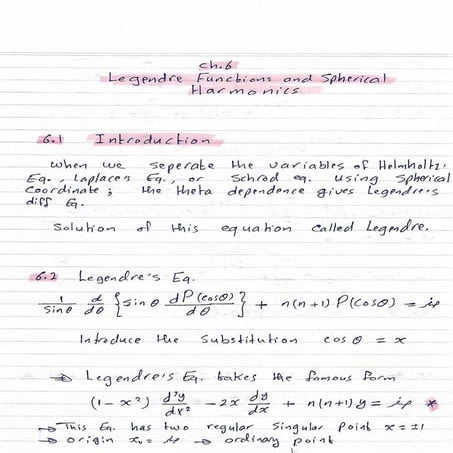 ch.6
Legendre Functions and Spherical
Harmonics
6.1 Introduction
when we seperate the variables of Helmholtz'
Eq., Laplace's Eq., or Schrod eq. using Spherical
Coordinate; the theta dependence gives Legendre's
diff Eq.
Solution of this equation called Legendre.
6.2 Legendre's Eq.
1/sinθ d/dθ {sinθ dP(cosθ)/dθ} + n(n+1) P(cosθ) =
Intoduce the Substitution cosθ = x
→ Legendre's Eq. takes the famous form
(1-x²) d²y/dx² - 2x dy/dx + n(n+1)y = *
→ This Eq. has two regular Singular Point x = ±1
→ origin x₀ = → ordinary point